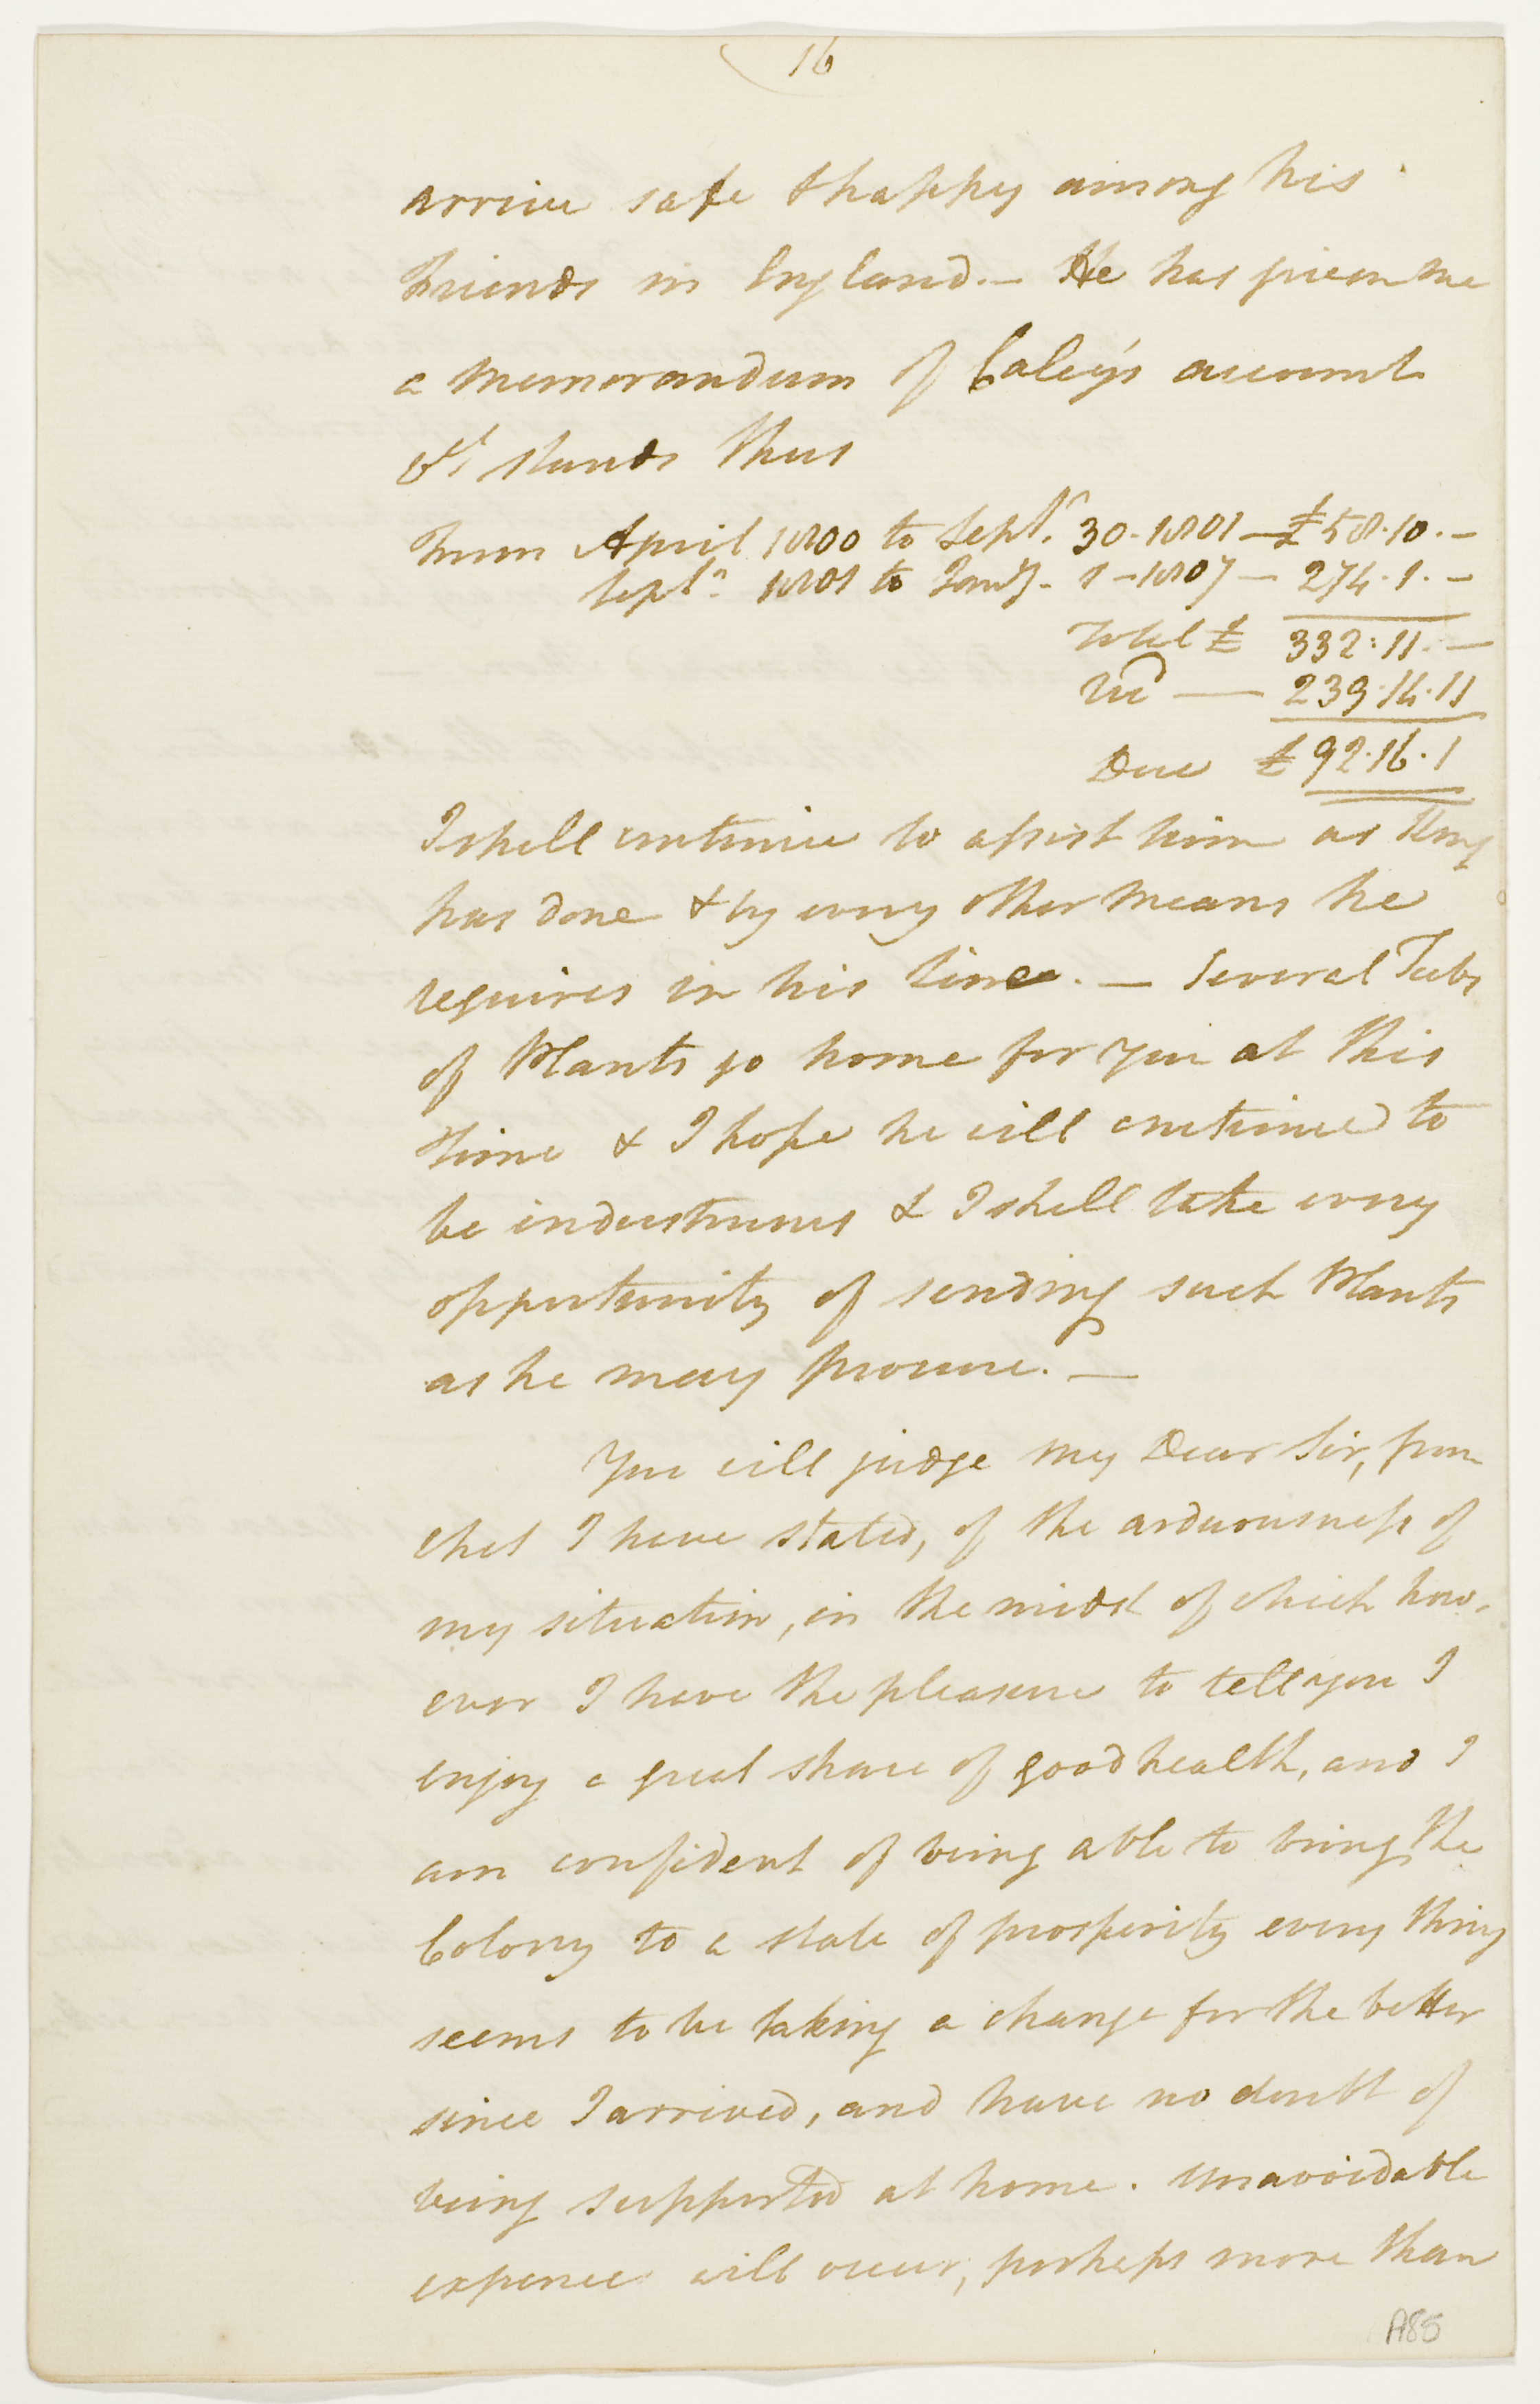 16
arrive safe & happy among his
Friends in England. — He has given me
a Memorandum of Caley's account
& it stands thus
From April 1800 to Septr. 30 - 1801 — £58.10. —
Septr. 1801 to Jany. 1 - 1807 — 274.1. —
Total £ 332:11. —
— 239.14.11
Due £92.16.1
I shall continue to assist him as King
has done & by every other means he
requires in his line. — Several Tubs
of Plants go home for you at this
time & I hope he will continued to
be industrious & I shall take every
opportunity of sending such Plants
as he may procure. —
You will judge my Dear Sir, from
what I have stated, of the arduousness of
my situation, in the midst of which how-
ever I have the pleasure to tell you I
enjoy a great share of good health, and I
am confident of being able to bring the
Colony to a state of prosperity every thing
seems to be taking a change for the better
since I arrived, and have no doubt of
being supported at home. Unavoidable
expence will occur, perhaps more than
A85